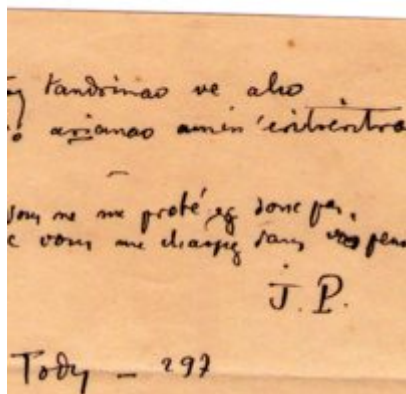 tandrinao ve aho
arianao amin'eritreritrao
vous ne me protégez donc pas,
vous me changez dans vos
J. P.
Tody - 297